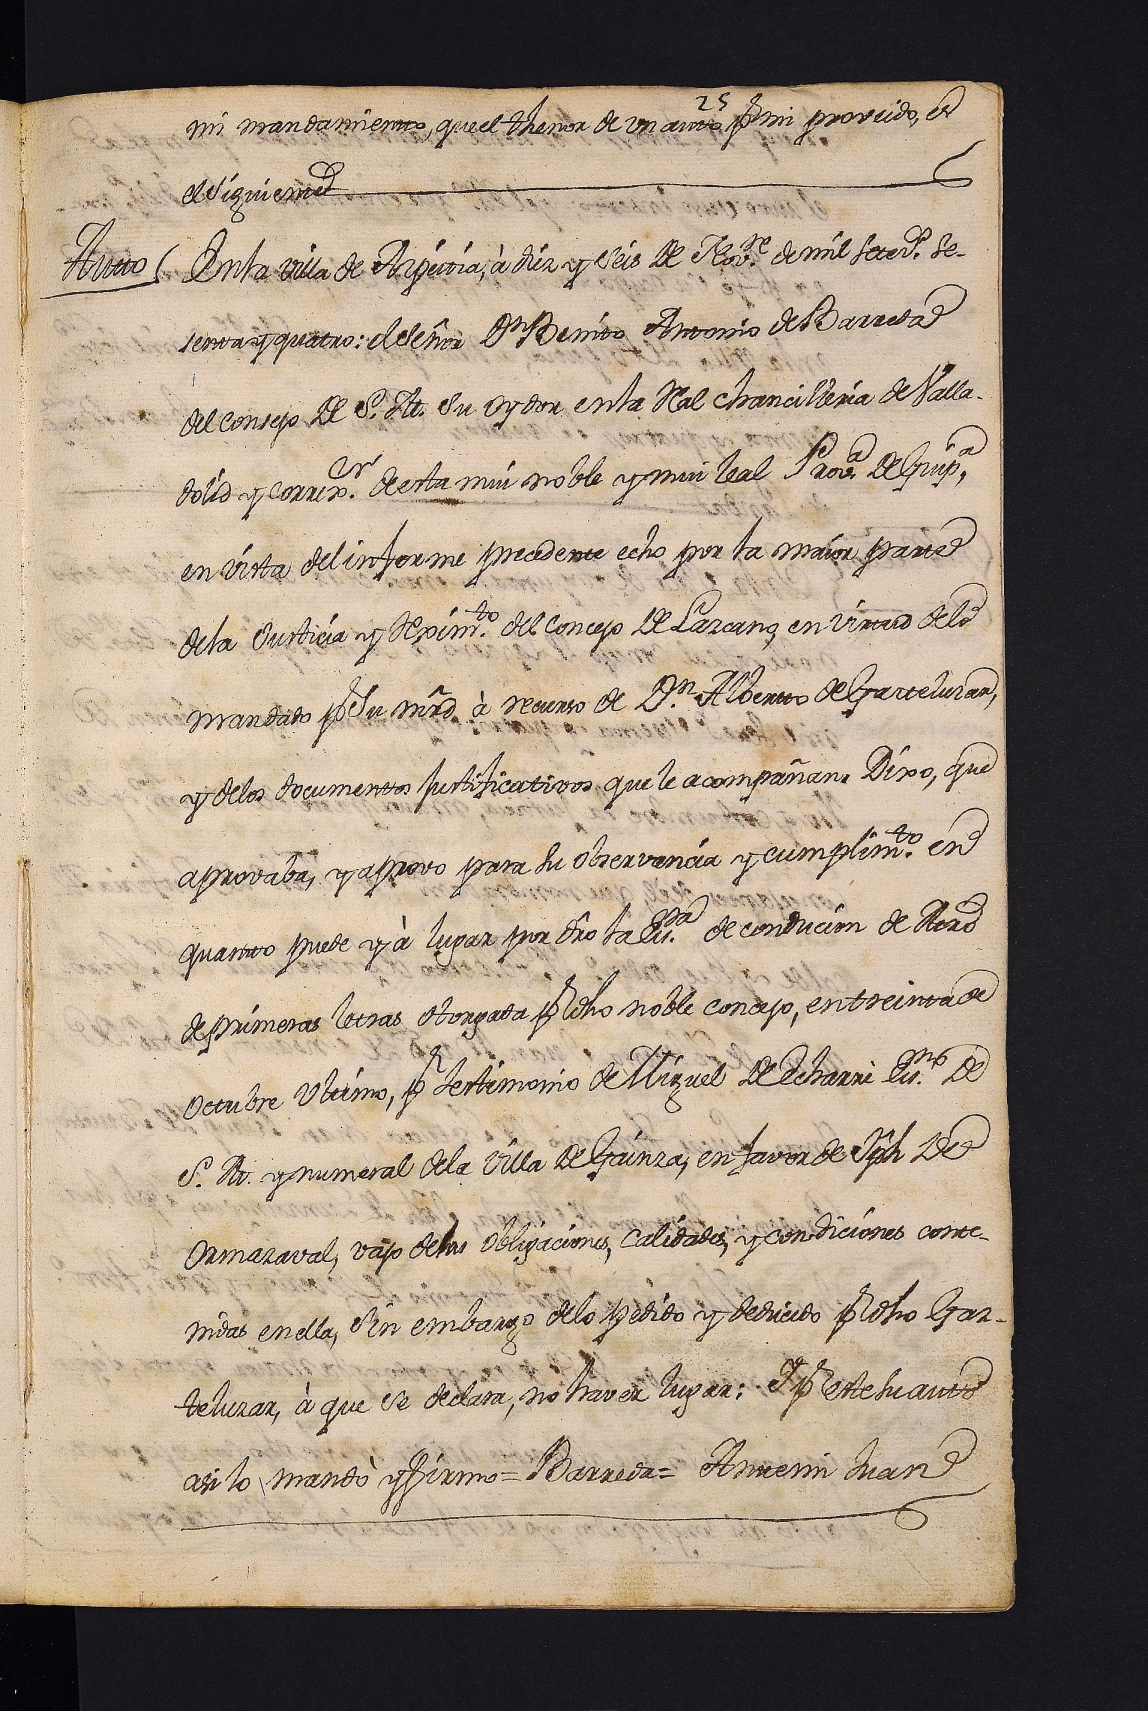 25
mi mandamiento, que el thenor de un auto pr mi proveido, es
el siguiente
Auto ( En la villa de Azpeitia, à diez y seis de Novre. de mil setecs. se-
senta y quatro: el Señor Dn Benito Antonio de Barreda
del consejo de S. M. su oydor en la Real chancilleria de Valla-
dolid y correxor. de esta mui noble y mui leal Prova. de Guipa,
en vista del informe precedente echo por la maior parte
de la Justicia y Reximto. del concejo de Lazcano, en virtud de lo
mandado pr Su mrd. à recurso de Dn. Alberto de Garteluzar,
y de los documentos justificativos que le acompañan. Dixo, que
aprovaba, y aprovo para su observancia y cumplimto. en
quanto puede y à lugar por dro la Escrra. de conducion de Mro
de primeras letras otorgada pr dho noble concejo, en treinta de
octubre ultimo, pr testimonio de Miguel de Echarri Escno. de
S. M. y numeral de la villa de Gainza, en favor de Jph de
Ormazaval, vajo de las obligaciones, calidades, y condiciones conte-
nidas en ella, sin embargo de lo pedido y deducido pr dho Gar-
teluzar, à que se declara, no haver lugar: Y pr este su auto
asi lo mandò y firmo = Barreda = Ante mi Juan